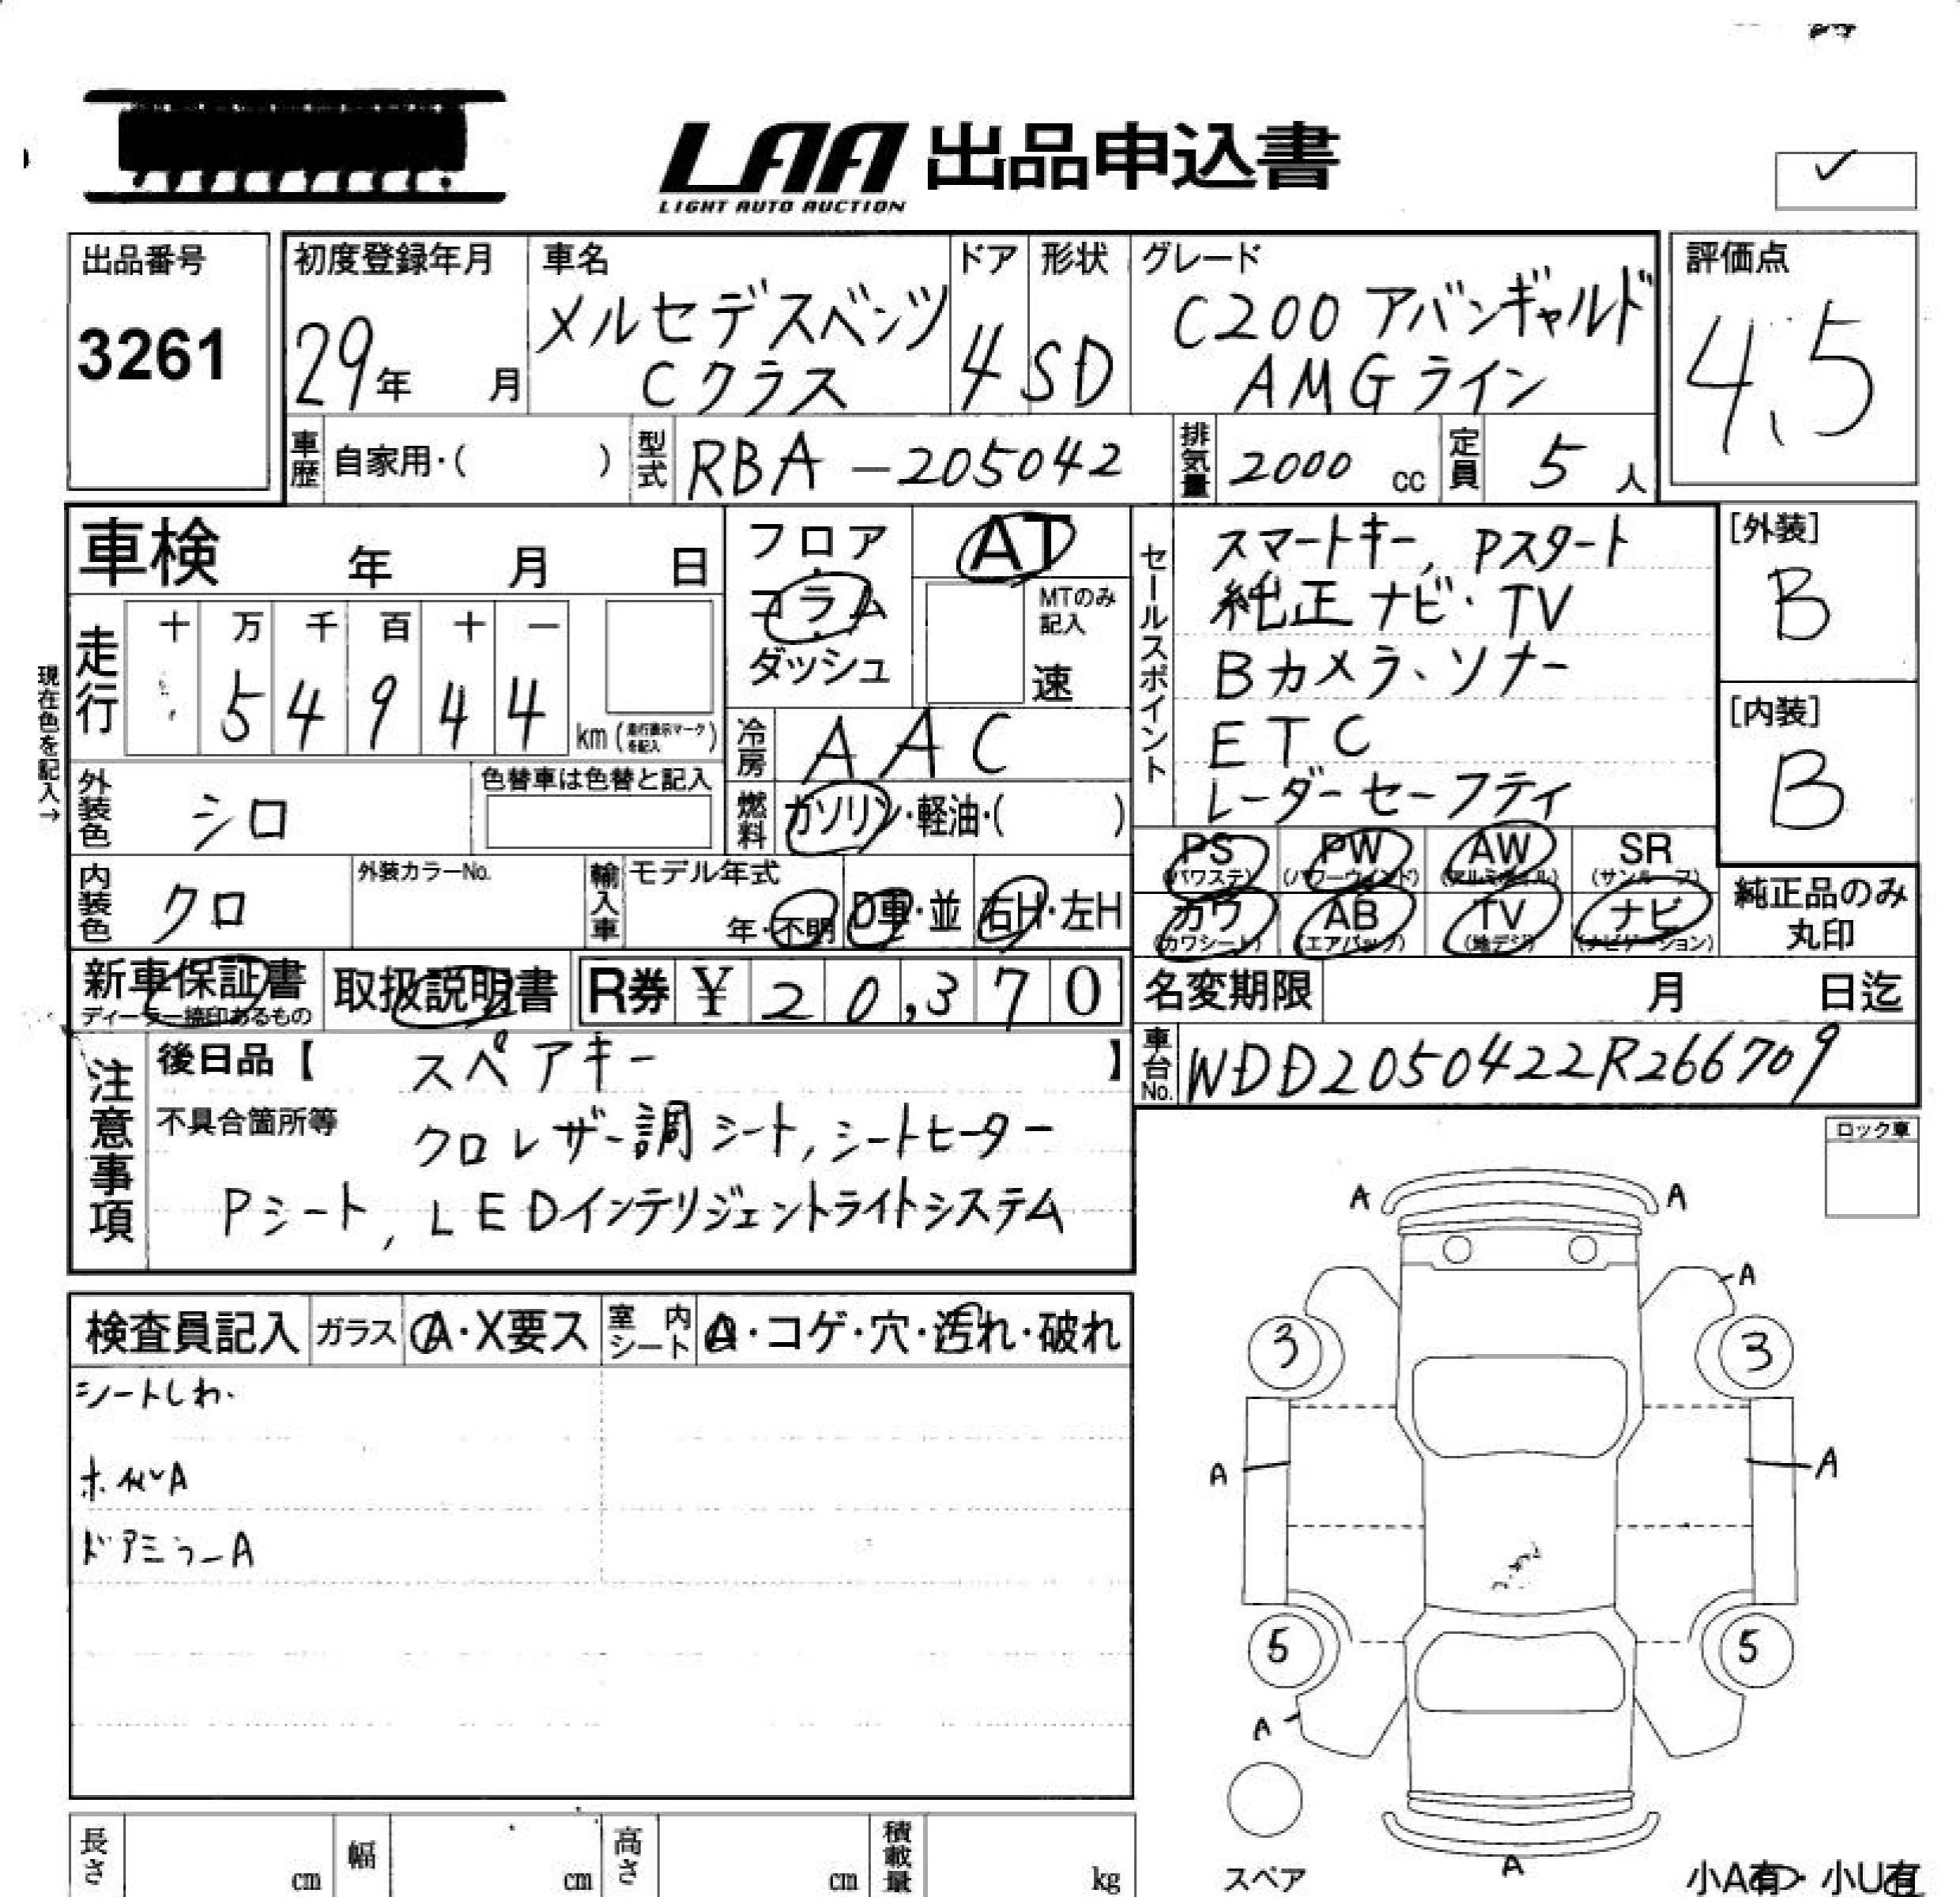 LAA 出品申込書
LIGHT AUTO AUCTION
✓
出品番号
3261
初度登録年月
29年 月
車名
メルセデスベンツ
Cクラス
ドア
4
形状
SD
グレード
C200 アバンギャルド
AMG ライン
評価点
4.5
車歴 自家用・( )
型式 RBA-205042
排気量 2000 cc
定員 5 人
車検 年 月 日
フロア
コラム
ダッシュ
AT
MTのみ
記入
速
セールスポイント
スマートキー, Pスタート
純正ナビ・TV
Bカメラ、ソナー
ETC
レーダーセーフティ
[外装]
B
[内装]
B
現在色を記入→
走行
十 万 千 百 十 一
5 4 9 4 4
km (走行表示マークを記入)
冷房 AAC
外装色 シロ
色替車は色替と記入
燃料 ガソリン・軽油・( )
PS (パワステ)
PW (パワーウインド)
AW (アルミホイル)
SR (サンルーフ)
内装色 クロ
外装カラーNo.
輸入車
モデル年式
年・不明
D車・並
右H・左H
カワ (カワシート)
AB (エアバック)
TV (地デジ)
ナビ (ナビゲーション)
純正品のみ
丸印
新車保証書
ディーラー捺印あるもの
取扱説明書
R券 ¥ 20,370
名変期限 月 日迄
車台No. WDD2050422R266709
注意事項
後日品【 スペアキー 】
不具合箇所等 クロレザー調シート, シートヒーター
Pシート, LEDインテリジェントライトシステム
ロック車
検査員記入
ガラス A・X要ス
室内シート A・コゲ・穴・汚れ・破れ
シートしわ.
ホイルA
ドアミラーA
A A
A
3 3
A A
5 5
A
A
スペア
小A有 小U有
長さ cm
幅 cm
高さ cm
積載量 kg